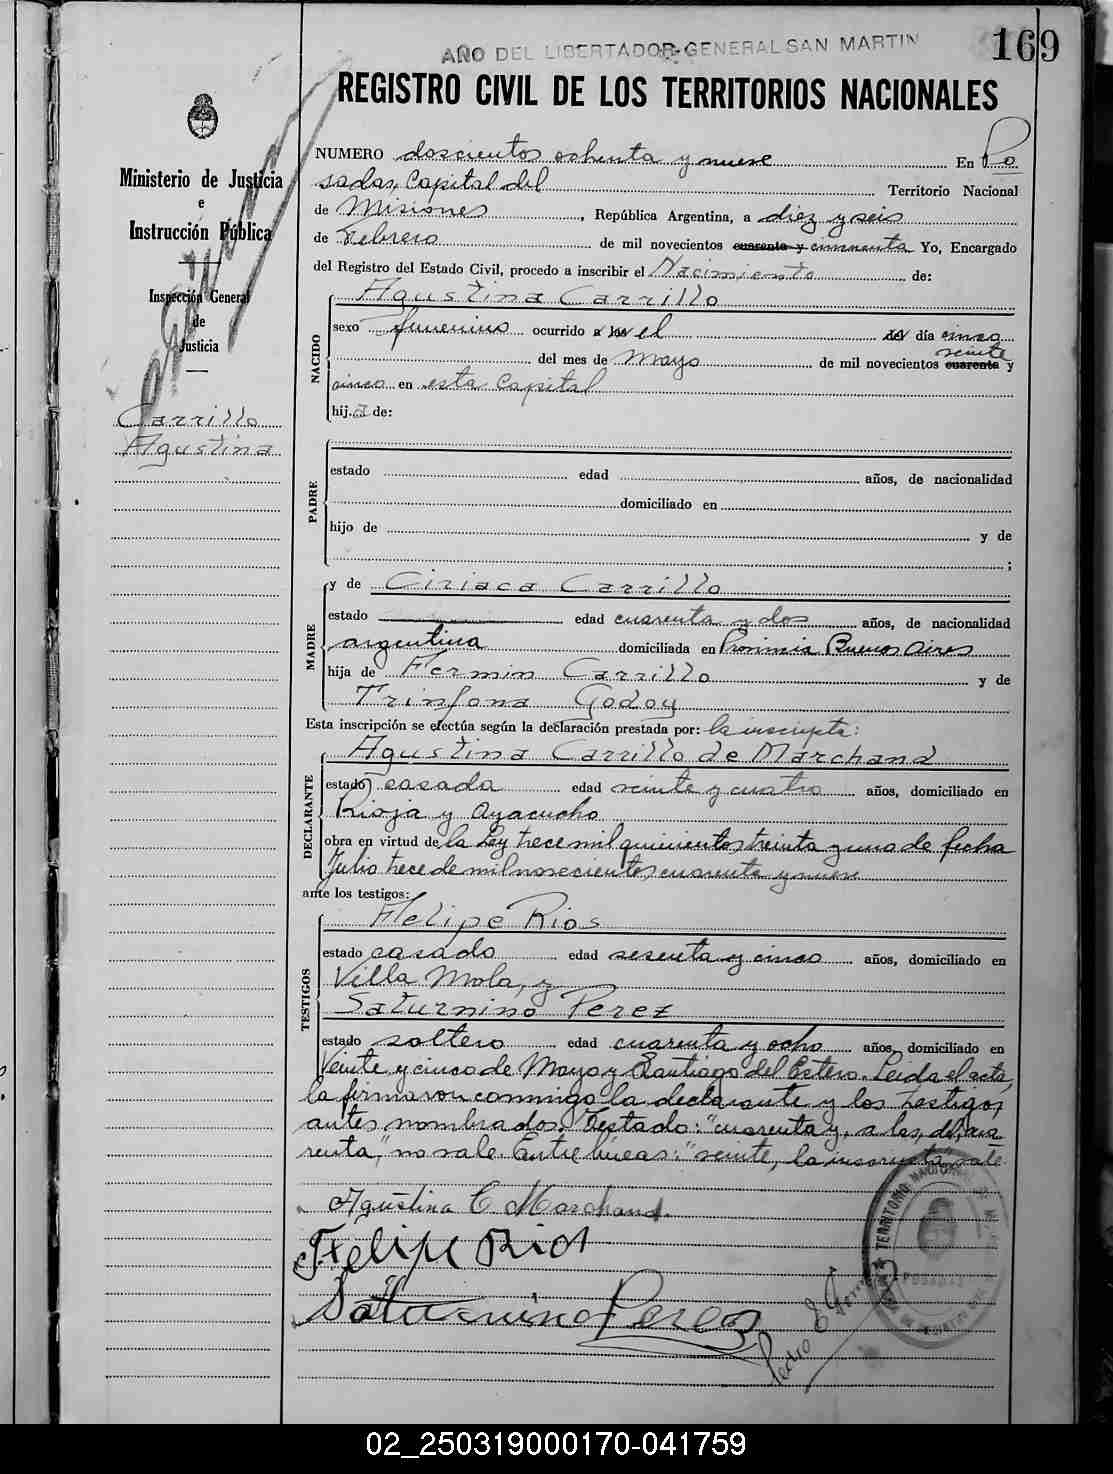 AÑO DEL LIBERTADOR GENERAL SAN MARTIN
169
REGISTRO CIVIL DE LOS TERRITORIOS NACIONALES
Ministerio de Justicia
e
Instrucción Pública
Inspección General
de
Justicia
Carrillo
Agustina
NUMERO doscientos ochenta y nueve En Po
sadas, Capital del Territorio Nacional
de Misiones, República Argentina, a diez y seis
de Febrero de mil novecientos cuarenta y cincuenta Yo, Encargado
del Registro del Estado Civil, procedo a inscribir el Nacimiento de:
NACIDO
Agustina Carrillo
sexo femenino ocurrido a las el del día cinco
veinte
del mes de Mayo de mil novecientos cuarenta y
cinco en esta Capital
hija de:
PADRE
estado edad años, de nacionalidad
domiciliado en
hijo de y de
;
MADRE
y de Ciriaca Carrillo
estado edad cuarenta y dos años, de nacionalidad
argentina domiciliada en Provincia Buenos Aires
hija de Fermin Carrillo y de
Trinfona Godoy
Esta inscripción se efectúa según la declaración prestada por: la inscripta:
DECLARANTE
Agustina Carrillo de Marchand
estado casada edad veinte y cuatro años, domiciliado en
Rioja y Ayacucho
obra en virtud de la Ley trece mil quinientos treinta y uno de fecha
Julio trece de mil novecientos cuarenta y nueve
ante los testigos:
TESTIGOS
Felipe Rios
estado casado edad sesenta y cinco años, domiciliado en
Villa Mola, y
Saturnino Perez
estado soltero edad cuarenta y ocho años, domiciliado en
Veinte y cinco de Mayo y Santiago del Estero. Leida el acta,
la firmaron conmigo la declarante y los testigos
antes nombrados. Testado: "cuarenta y, a las, del, cua
renta," no vale. Entre lineas: "veinte, la inscripta," vale
Agustina C Marchand.
Felipe Rios
Saturnino Perez
Pedro E
TERRITORIO NACIONAL DE
POSADAS
02_250319000170-041759